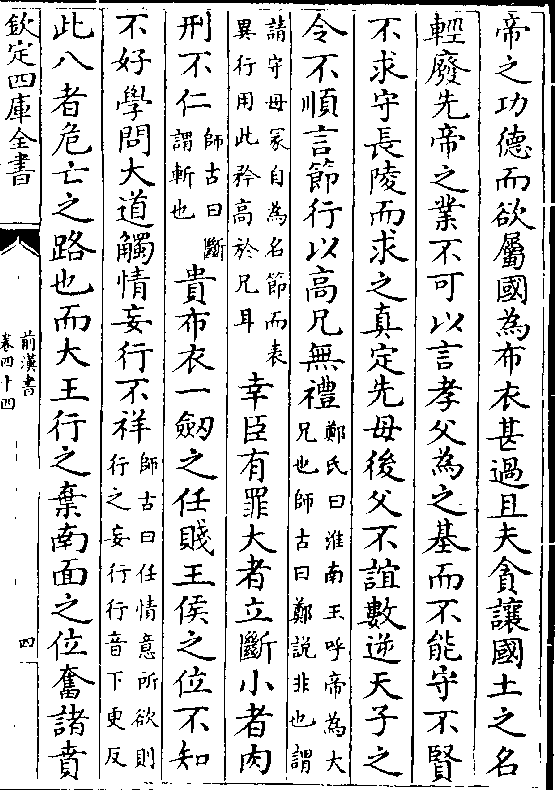 帝之功德而欲屬國為布衣甚過且夫貪讓國土之名
輕廢先帝之業不可以言孝父為之基而不能守不賢
不求守長陵而求之真定先母後父不誼數逆天子之
令不順言節行以高兄無禮鄭氏曰淮南王呼帝為大兄也師古曰鄭說非也謂
請守母冢自為名節而表異行用此矜高於兄耳幸臣有罪大者立斷小者肉
刑不仁師古曰斷謂斬也貴布衣一劒之任賤王侯之位不知
不好學問大道觸情妄行不祥師古曰任情意所欲則行之妄行行音下更反
此八者危亡之路也而大王行之棄南面之位奮諸賁
欽定四庫全書
前漢書
卷四十四
四